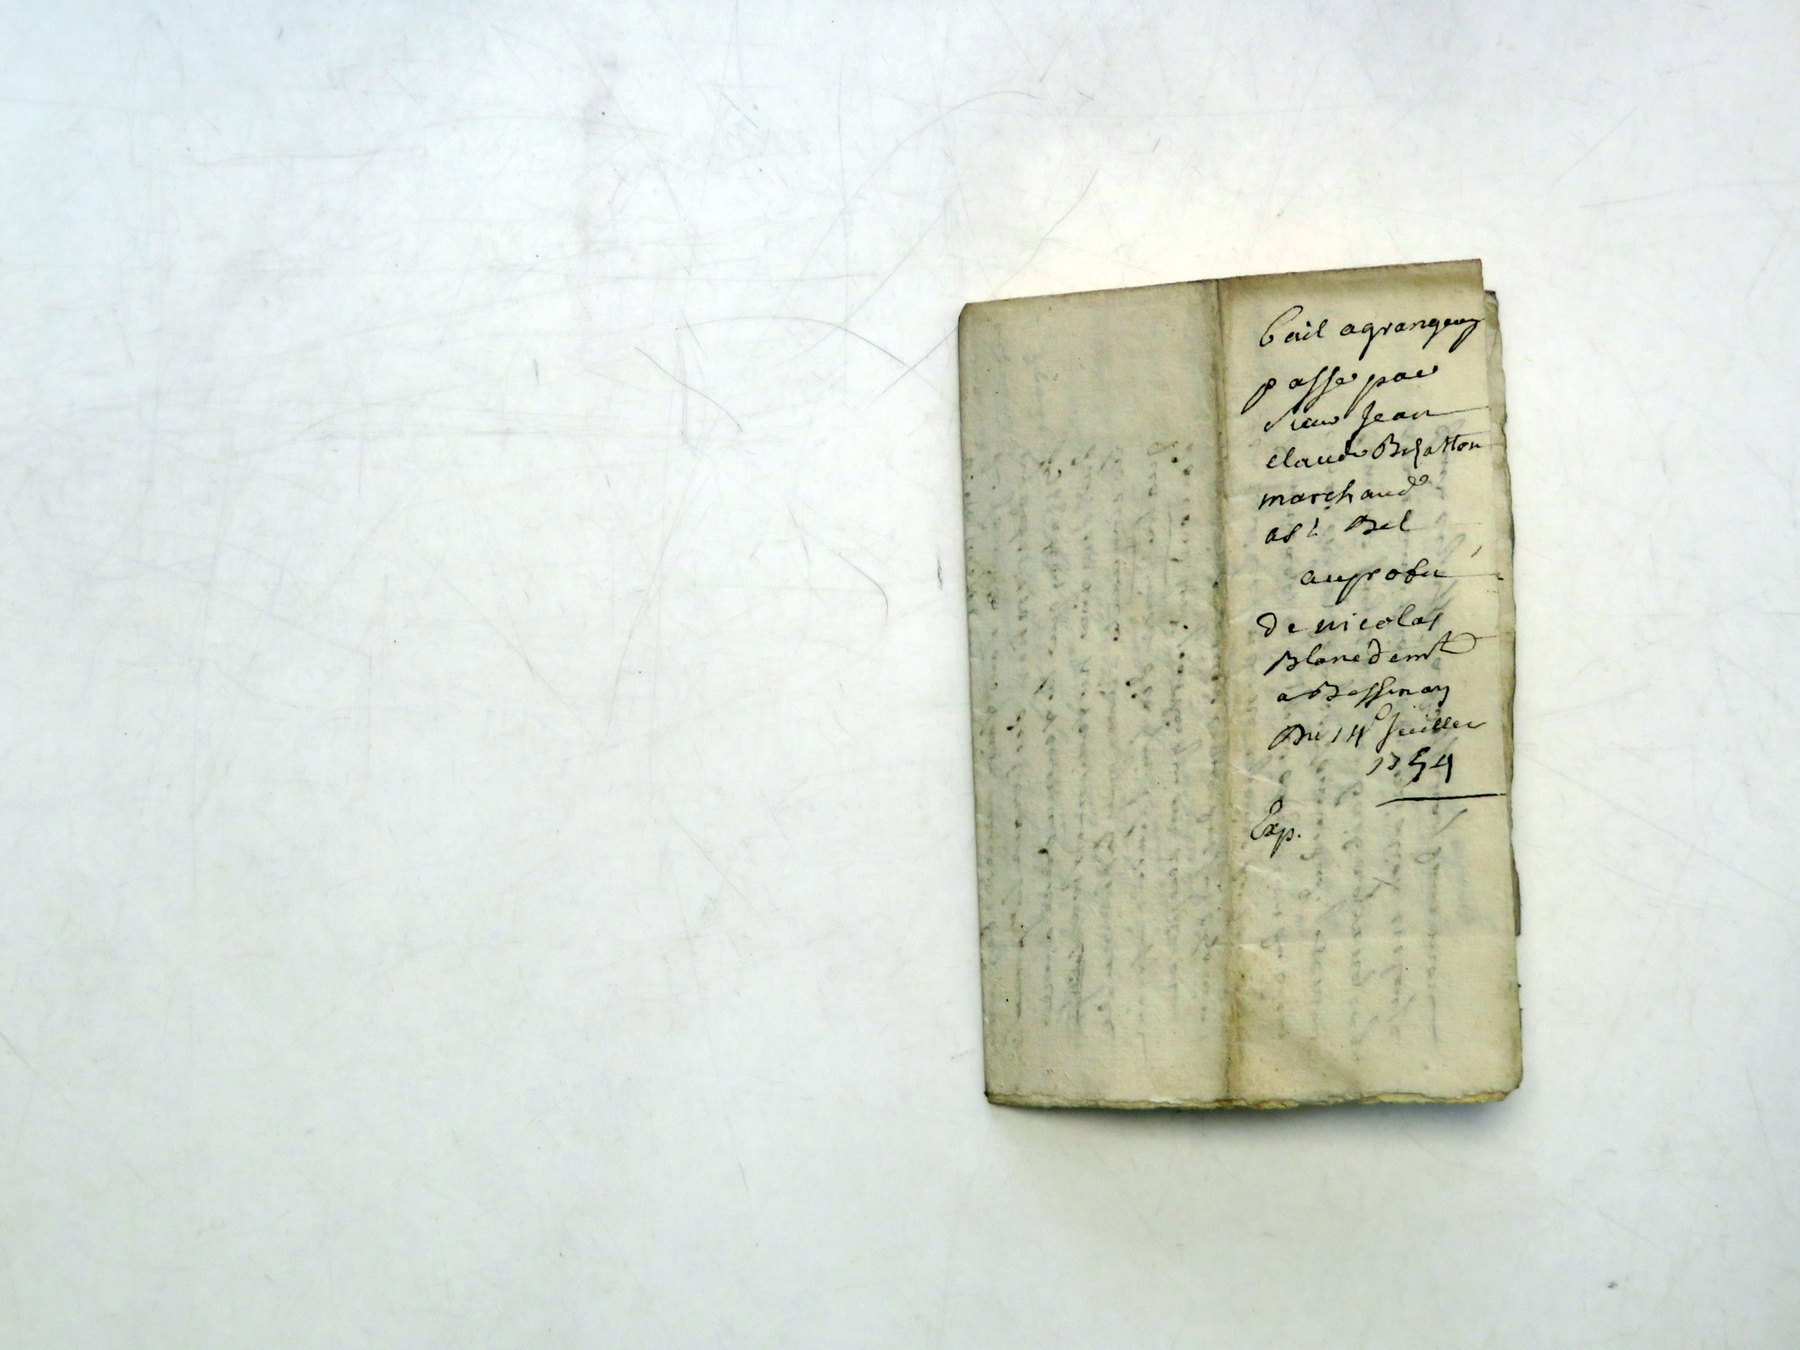 bail agrangeage
passé par
sieur Jean
claude Brjatton
marchand
a st Bel
au profit
de nicolas
Blanc demt
a Bessenay
Du 14e Juillet
1754
Exp.